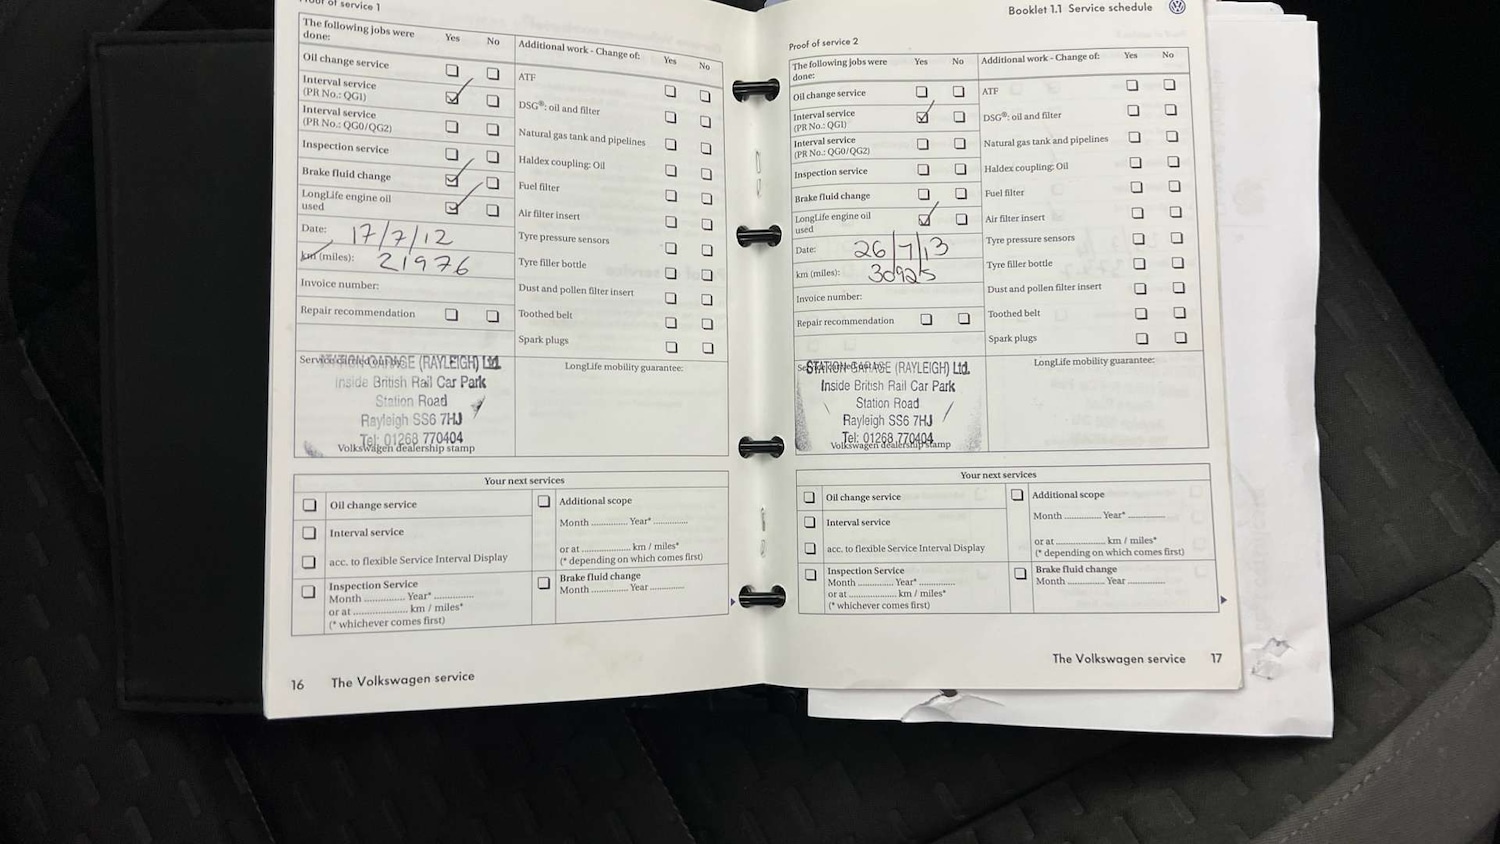 Proof of service 1
The following jobs were done: Yes No
Oil change service
Interval service (PR No.: QG1)
Interval service (PR No.: QG0/QG2)
Inspection service
Brake fluid change
LongLife engine oil used
Date: 17/7/12
km (miles): 21976
Invoice number:
Repair recommendation
Additional work - Change of: Yes No
ATF
DSG®: oil and filter
Natural gas tank and pipelines
Haldex coupling: Oil
Fuel filter
Air filter insert
Tyre pressure sensors
Tyre filler bottle
Dust and pollen filter insert
Toothed belt
Spark plugs
STATION GARAGE (RAYLEIGH) Ltd.
Inside British Rail Car Park
Station Road
Rayleigh SS6 7HJ
Tel: 01268 770404
Volkswagen dealership stamp
LongLife mobility guarantee:
Your next services
Oil change service
Interval service
acc. to flexible Service Interval Display
Inspection Service
Month .............. Year* ..............
or at .................... km / miles*
(* whichever comes first)
Additional scope
Month ............. Year* ............
or at .................... km / miles*
(* depending on which comes first)
Brake fluid change
Month ............. Year ............
16 The Volkswagen service
Booklet 1.1 Service schedule
Proof of service 2
The following jobs were done: Yes No
Oil change service
Interval service (PR No.: QG1)
Interval service (PR No.: QG0/QG2)
Inspection service
Brake fluid change
LongLife engine oil used
Date: 26/7/13
km (miles): 30925
Invoice number:
Repair recommendation
Additional work - Change of: Yes No
ATF
DSG®: oil and filter
Natural gas tank and pipelines
Haldex coupling: Oil
Fuel filter
Air filter insert
Tyre pressure sensors
Tyre filler bottle
Dust and pollen filter insert
Toothed belt
Spark plugs
STATION GARAGE (RAYLEIGH) Ltd.
Inside British Rail Car Park
Station Road
Rayleigh SS6 7HJ
Tel: 01268 770404
Volkswagen dealership stamp
LongLife mobility guarantee:
Your next services
Oil change service
Interval service
acc. to flexible Service Interval Display
Inspection Service
Month ............. Year* .............
or at .................... km / miles*
(* whichever comes first)
Additional scope
Month ............. Year* .............
or at .................... km / miles*
(* depending on which comes first)
Brake fluid change
Month ............. Year .............
The Volkswagen service 17